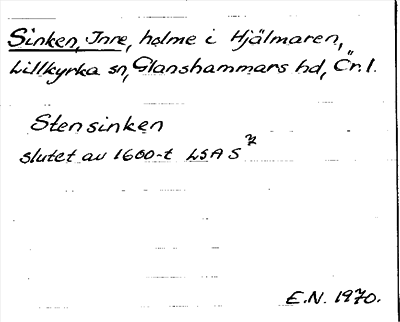 Sinken, Inre, holme i Hjälmaren,
Lillkyrka sn, Glanshammars hd, Ör.l.
Stensinken
slutet av 1600-t LSA S 7
E.N. 1970.